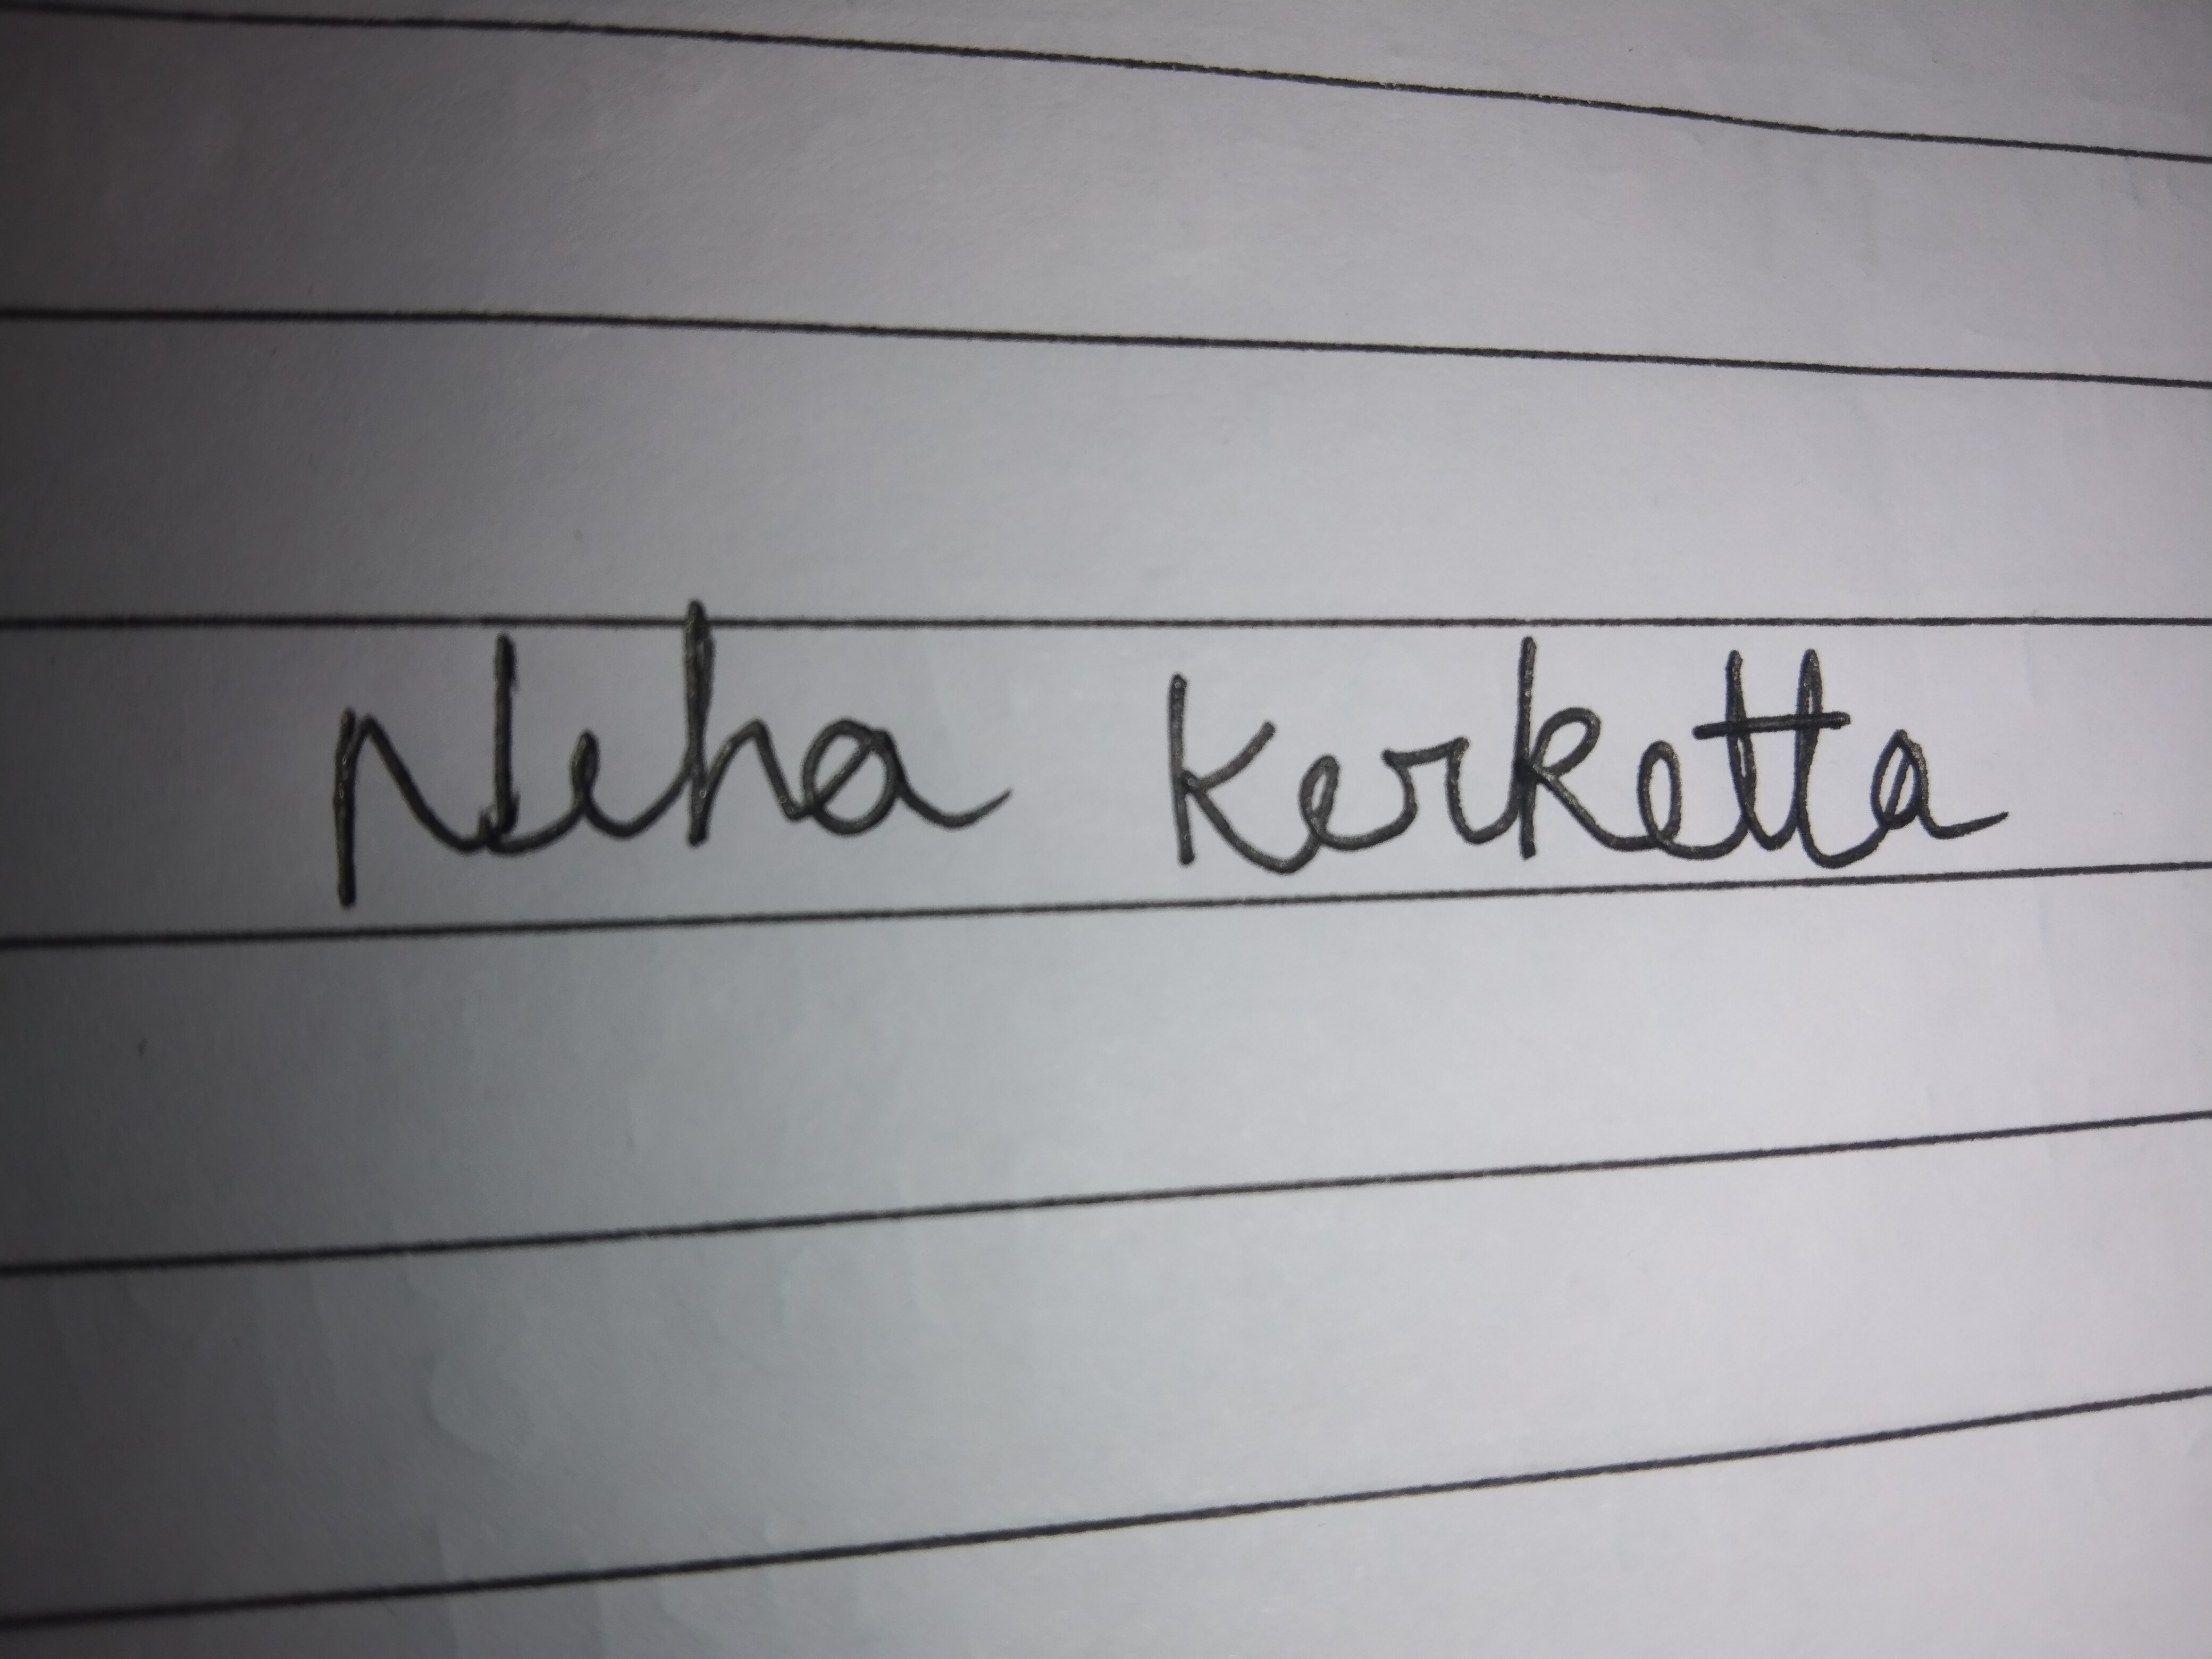 Neha Kerketta